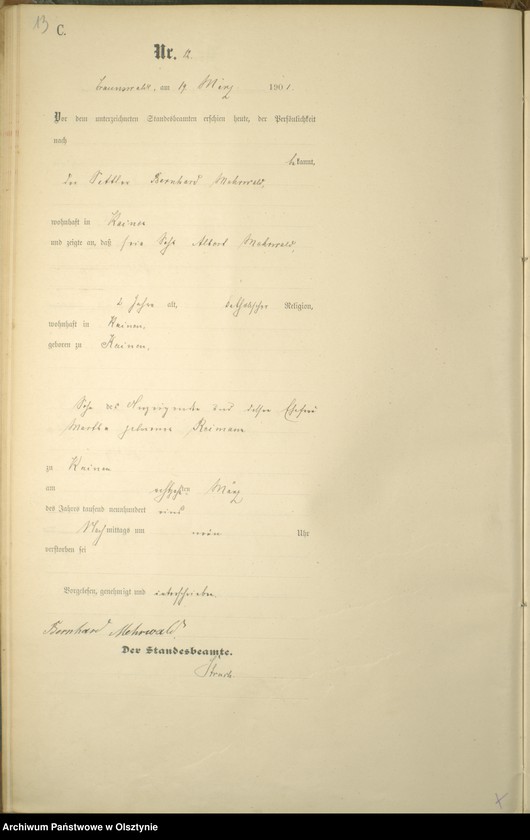 13
C.
Nr. 12.
am 19 März 1901.
Vor dem unterzeichneten Standesbeamten erschien heute, der Persönlichkeit
nach
bekannt,
der Bernhard Mehrwald,
wohnhaft in Kainen
und zeigte an, daß sein Sohn Albert Mehrwald,
Jahre alt, katholischer Religion,
wohnhaft in Kainen,
geboren zu Kainen,
Sohn des Anzeigenden und dessen Ehefrau
Martha geborene Reimann
zu Kainen
am März
des Jahres tausend neunhundert eins
Nachmittags um neun Uhr
verstorben sei
Vorgelesen, genehmigt und unterschrieben.
Bernhard Mehrwald
Der Standesbeamte.
Archiwum Państwowe w Olsztynie